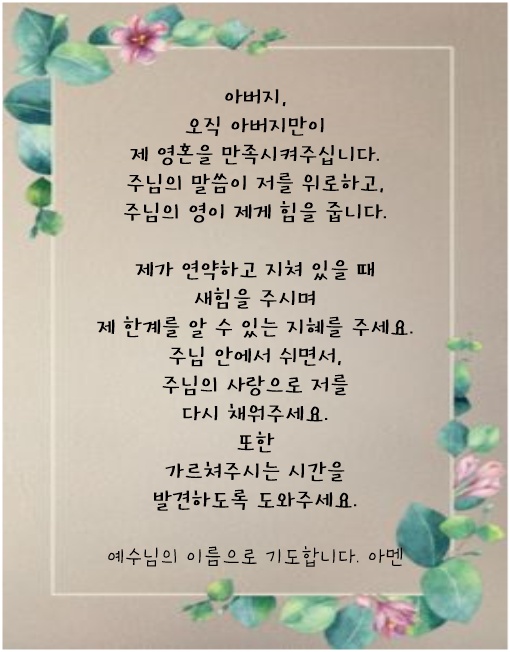 아버지,
오직 아버지만이
제 영혼을 만족시켜주십니다.
주님의 말씀이 저를 위로하고,
주님의 영이 제게 힘을 줍니다.
제가 연약하고 지쳐 있을 때
새힘을 주시며
제 한계를 알 수 있는 지혜를 주세요.
주님 안에서 쉬면서,
주님의 사랑으로 저를
다시 채워주세요.
또한
가르쳐주시는 시간을
발견하도록 도와주세요.
예수님의 이름으로 기도합니다. 아멘